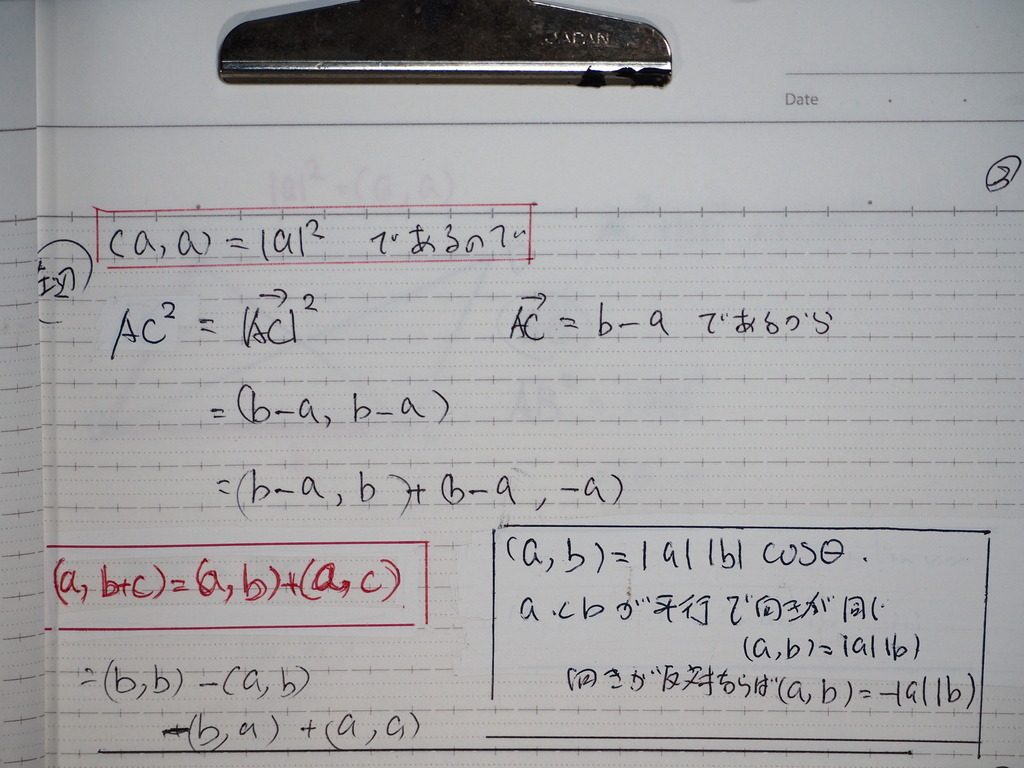 JAPAN
Date
②
(a, a) = |a|² であるので
AC² = |AC→|²
AC→ = b-a であるから
= (b-a, b-a)
= (b-a, b) + (b-a, -a)
(a, b+c) = (a, b) + (a, c)
= (b, b) - (a, b)
-(b, a) + (a, a)
(a, b) = |a| |b| cosθ.
aとbが平行で向きが同じ
(a, b) = |a| |b|
向きが反対ならば (a, b) = -|a| |b|